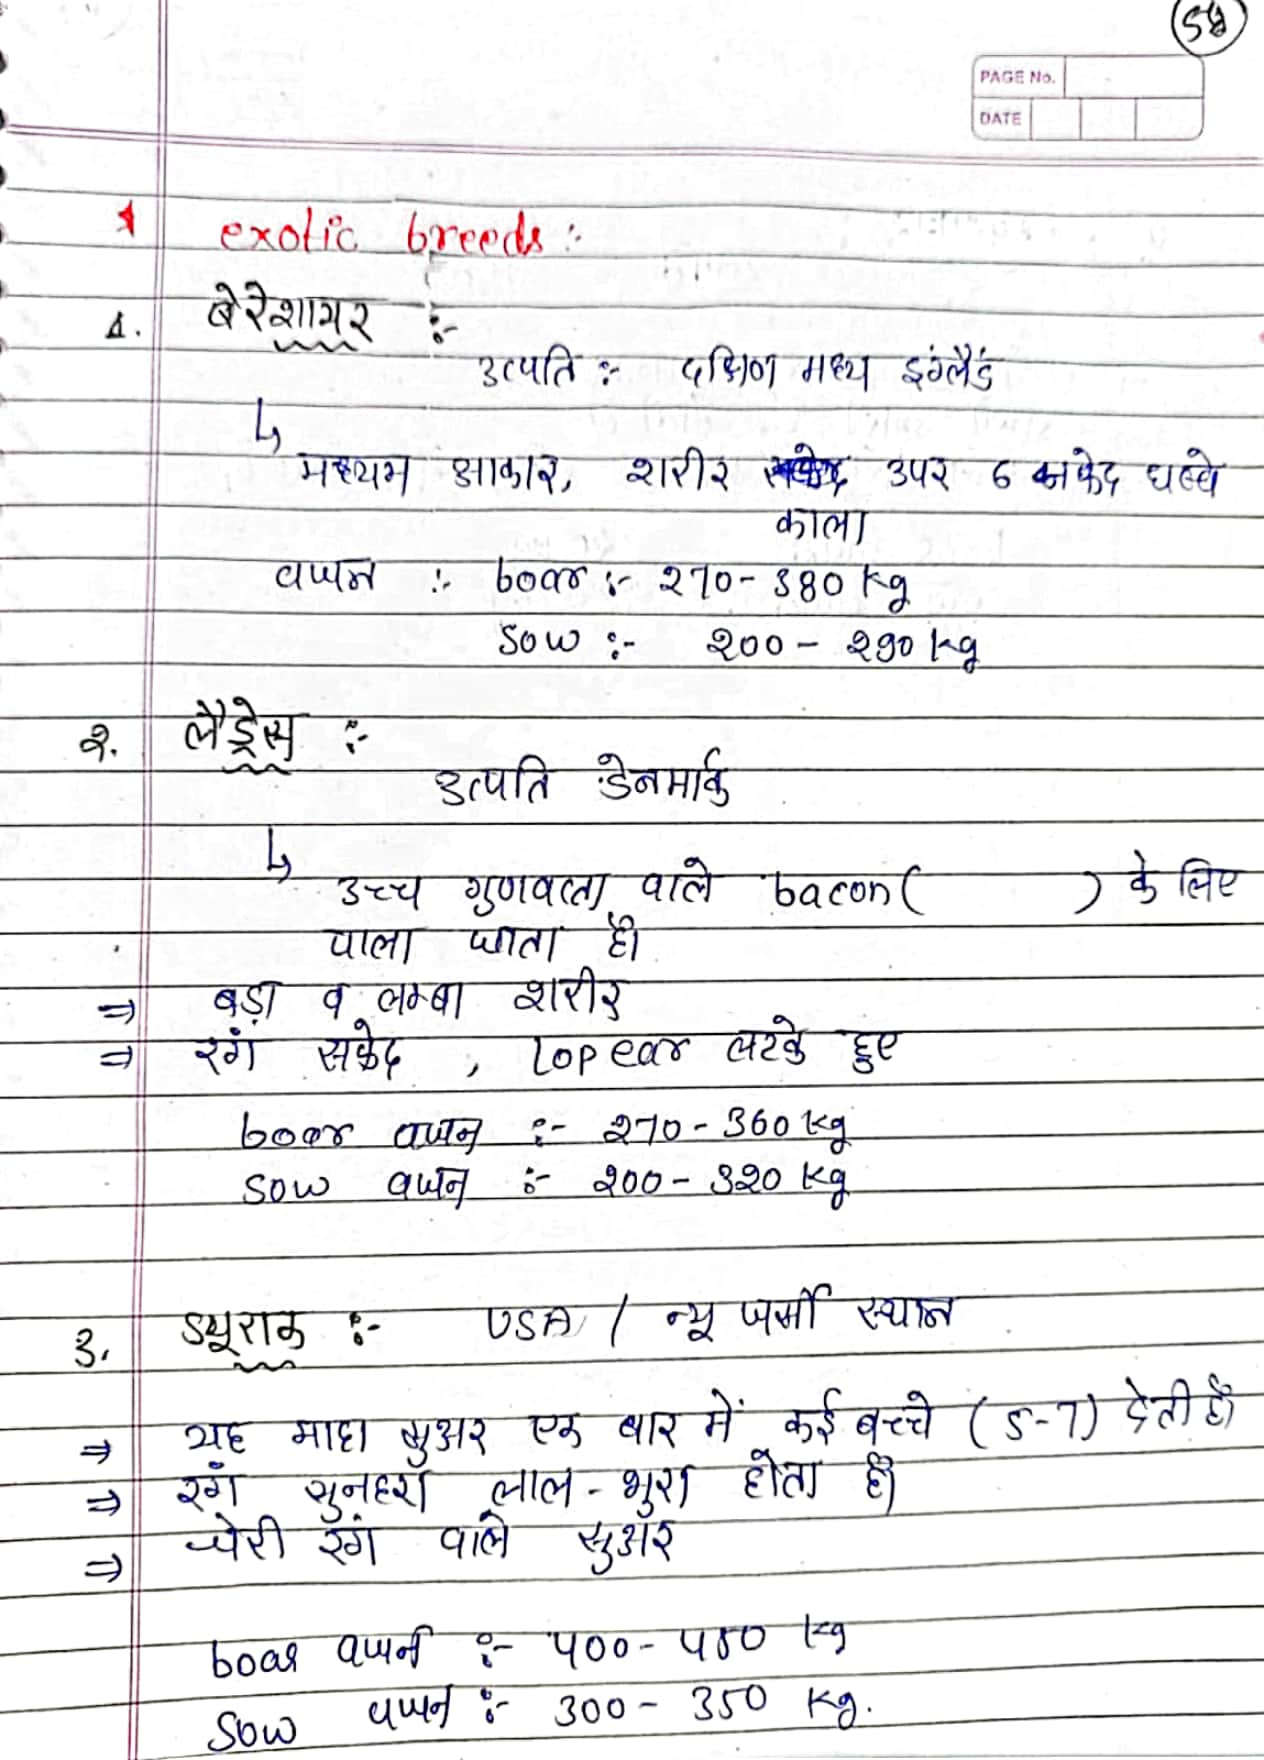 PAGE No.
DATE
exotic breeds :-
1. बेरेशायर :-
उत्पति :- दक्षिण मध्य इंग्लैंड
↳
मध्यम आकार, शरीर उपर 6 सफेद धब्बे
काला
वजन :- boar :- 270-380 kg
sow :- 200 - 290 kg
2. लैंड्रेस :-
उत्पति डेनमार्क
↳
उच्च गुणवत्ता वाले bacon ( ) के लिए
पाला जाता है।
⇒ बड़ा व लम्बा शरीर
⇒ रंग सफेद , lop ear लटके हुए
boar वजन :- 270 - 360 kg
sow वजन :- 200 - 320 kg
3. ड्यूराक :- USA / न्यू जर्सी स्थान
⇒ यह मादा सुअर एक बार में कई बच्चे ( 5-7 ) देती है।
⇒ रंग सुनहरा लाल - भुरा होता है।
⇒ चेरी रंग वाले सुअर
boar वजन :- 400 - 450 kg
sow वजन :- 300 - 350 kg.